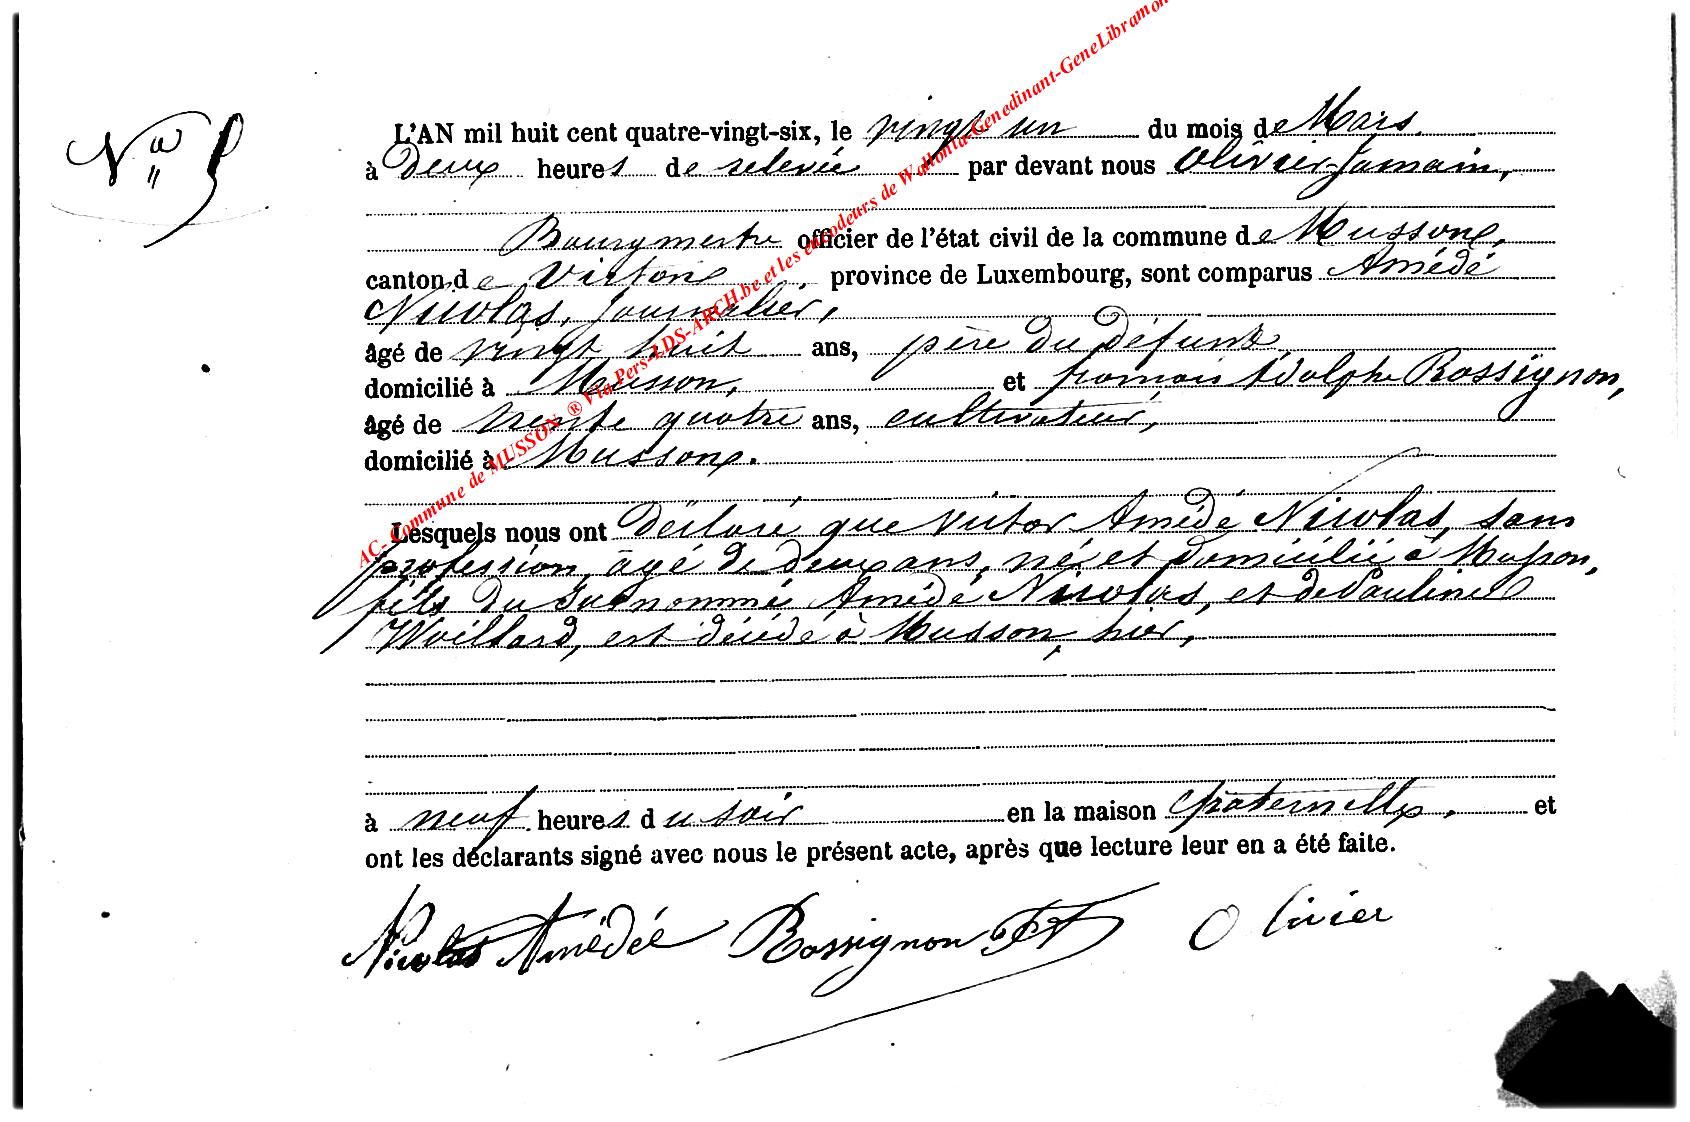 N° 5
L'AN mil huit cent quatre-vingt-six, le vingt un du mois de Mars
à Deux heures de relevée par devant nous Olivier Jamain,
Bourgmestre officier de l'état civil de la commune de Musson,
canton de Virton, province de Luxembourg, sont comparus Amédé
Nicolas, Journalier,
âgé de vingt huit ans, père du défunt
domicilié à Musson, et françois Adolphe Rossignon,
âgé de trente quatre ans, cultivateur,
domicilié à Musson.
Lesquels nous ont déclaré que Victor Amédé Nicolas, sans
profession, âgé de deux ans, né et domicilié à Musson,
fils du susnommé Amédé Nicolas, et de Pauline
Woillard, est décédé à Musson, hier,
à neuf heures du soir en la maison fraternelle, et
ont les déclarants signé avec nous le présent acte, après que lecture leur en a été faite.
Nicolas Amédée Rossignon FA Olivier
AC- Commune de MUSSON ® Via Pers-LDS-ARCH.be et les encodeurs de Wallonia-Genedinant-GeneLibramon